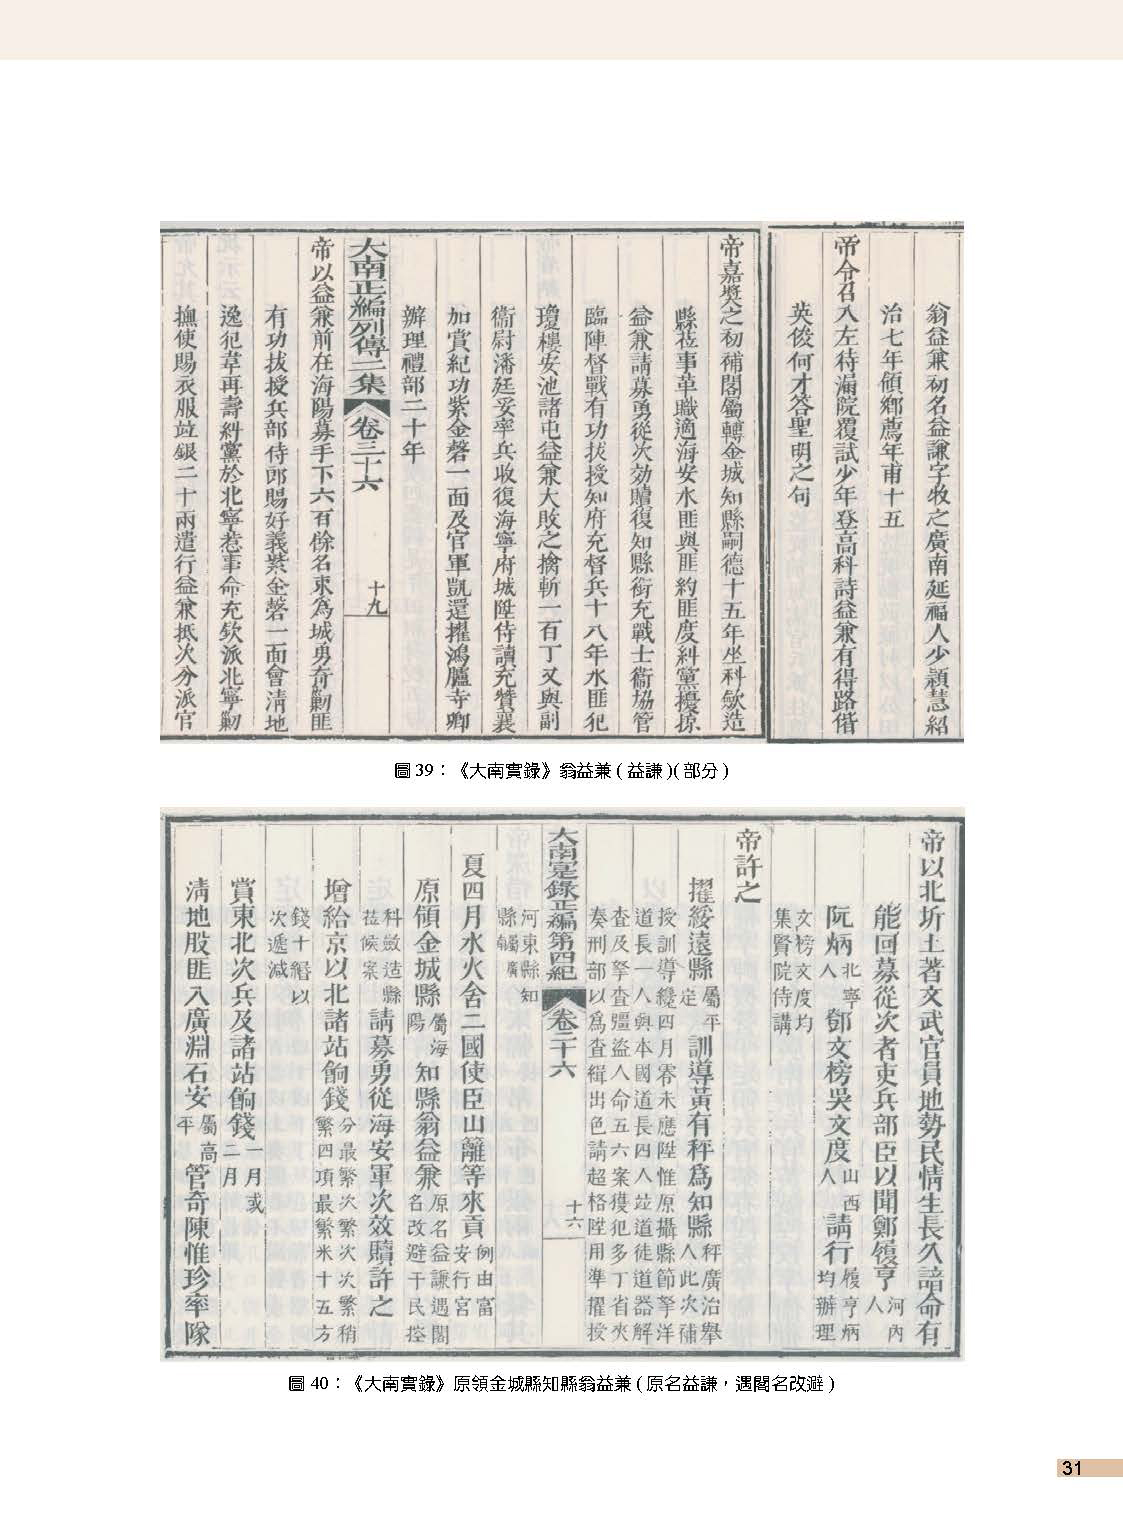 翁益兼初名益謙字牧之廣南延福人少穎慧紹
治七年領鄉薦年甫十五
帝令召入左待漏院覆試少年登高科詩益兼有得路偕
英俊何才答聖明之句
帝嘉奬之初補閣屬轉金城知縣嗣德十五年坐科歛造
縣莅事革職適海安水匪與匪約匪度糾黨擾掠
益兼請募勇從次効贖復知縣銜充戰士衞協管
臨陣督戰有功拔授知府充督兵十八年水匪犯
瓊樓安池諸屯益兼大敗之擒斬一百丁又與副
衞尉潘廷妥率兵收復海寧府城陞侍讀充贊襄
加賞紀功紫金磬一面及官軍凱還擢鴻臚寺卿
辦理禮部二十年
大南正編列傳二集 卷三十六 十九
帝以益兼前在海陽募手下六百餘名束為城勇奇勦匪
有功拔授兵部侍郎賜好義紫金磬一面會清地
逸犯韋再壽糾黨於北寧惹事命充欽派北寧勦
撫使賜衣服竝銀二十兩遣行益兼抵次分派官
圖 39：《大南實錄》翁益兼 ( 益謙 )( 部分 )
帝以北圻土著文武官員地勢民情生長久諳命有
能回募從次者吏兵部臣以聞鄭履亨河內人
阮炳北寧人鄧文榜吳文度山西人請行履亨炳均辦理
文榜文度均集賢院侍講
帝許之
擢綏遠縣屬平定訓導黃有秤為知縣秤廣治舉人此次補
授訓導纔四月零未應陞惟原攝縣節拏洋
道長一人與本國道長四人竝道徒道器解
查及拏查彊盜人命五六案獲犯多丁省夾
奏刑部以為查緝出色請超格陞用準擢授
大南寔錄正編第四紀 卷二十六 十六
河東縣知縣屬廣
夏四月水火舍二國使臣山籬等來貢例由富安行宮
原領金城縣屬海陽知縣翁益兼原名益謙遇閣名改避干民控
科斂造縣莅候案請募勇從海安軍次效贖許之
增給京以北諸站餉錢分最繁次繁次次繁稍繁四項最繁米十五方
錢十緡以次遞減
賞東北次兵及諸站餉錢一月或二月
清地股匪入廣淵石安屬高平管奇陳惟珍率隊
圖 40：《大南實錄》原領金城縣知縣翁益兼 ( 原名益謙，遇閣名改避 )
31